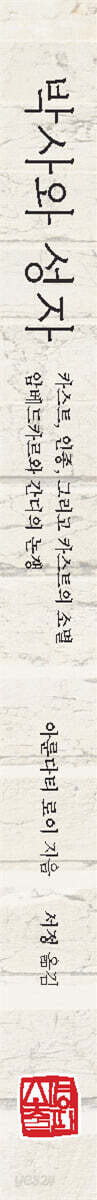 박사와 성자
카스트, 인종, 그리고 카스트의 소멸
암베드카르와 간디의 논쟁
아룬다티 로이 지음
서정 옮김